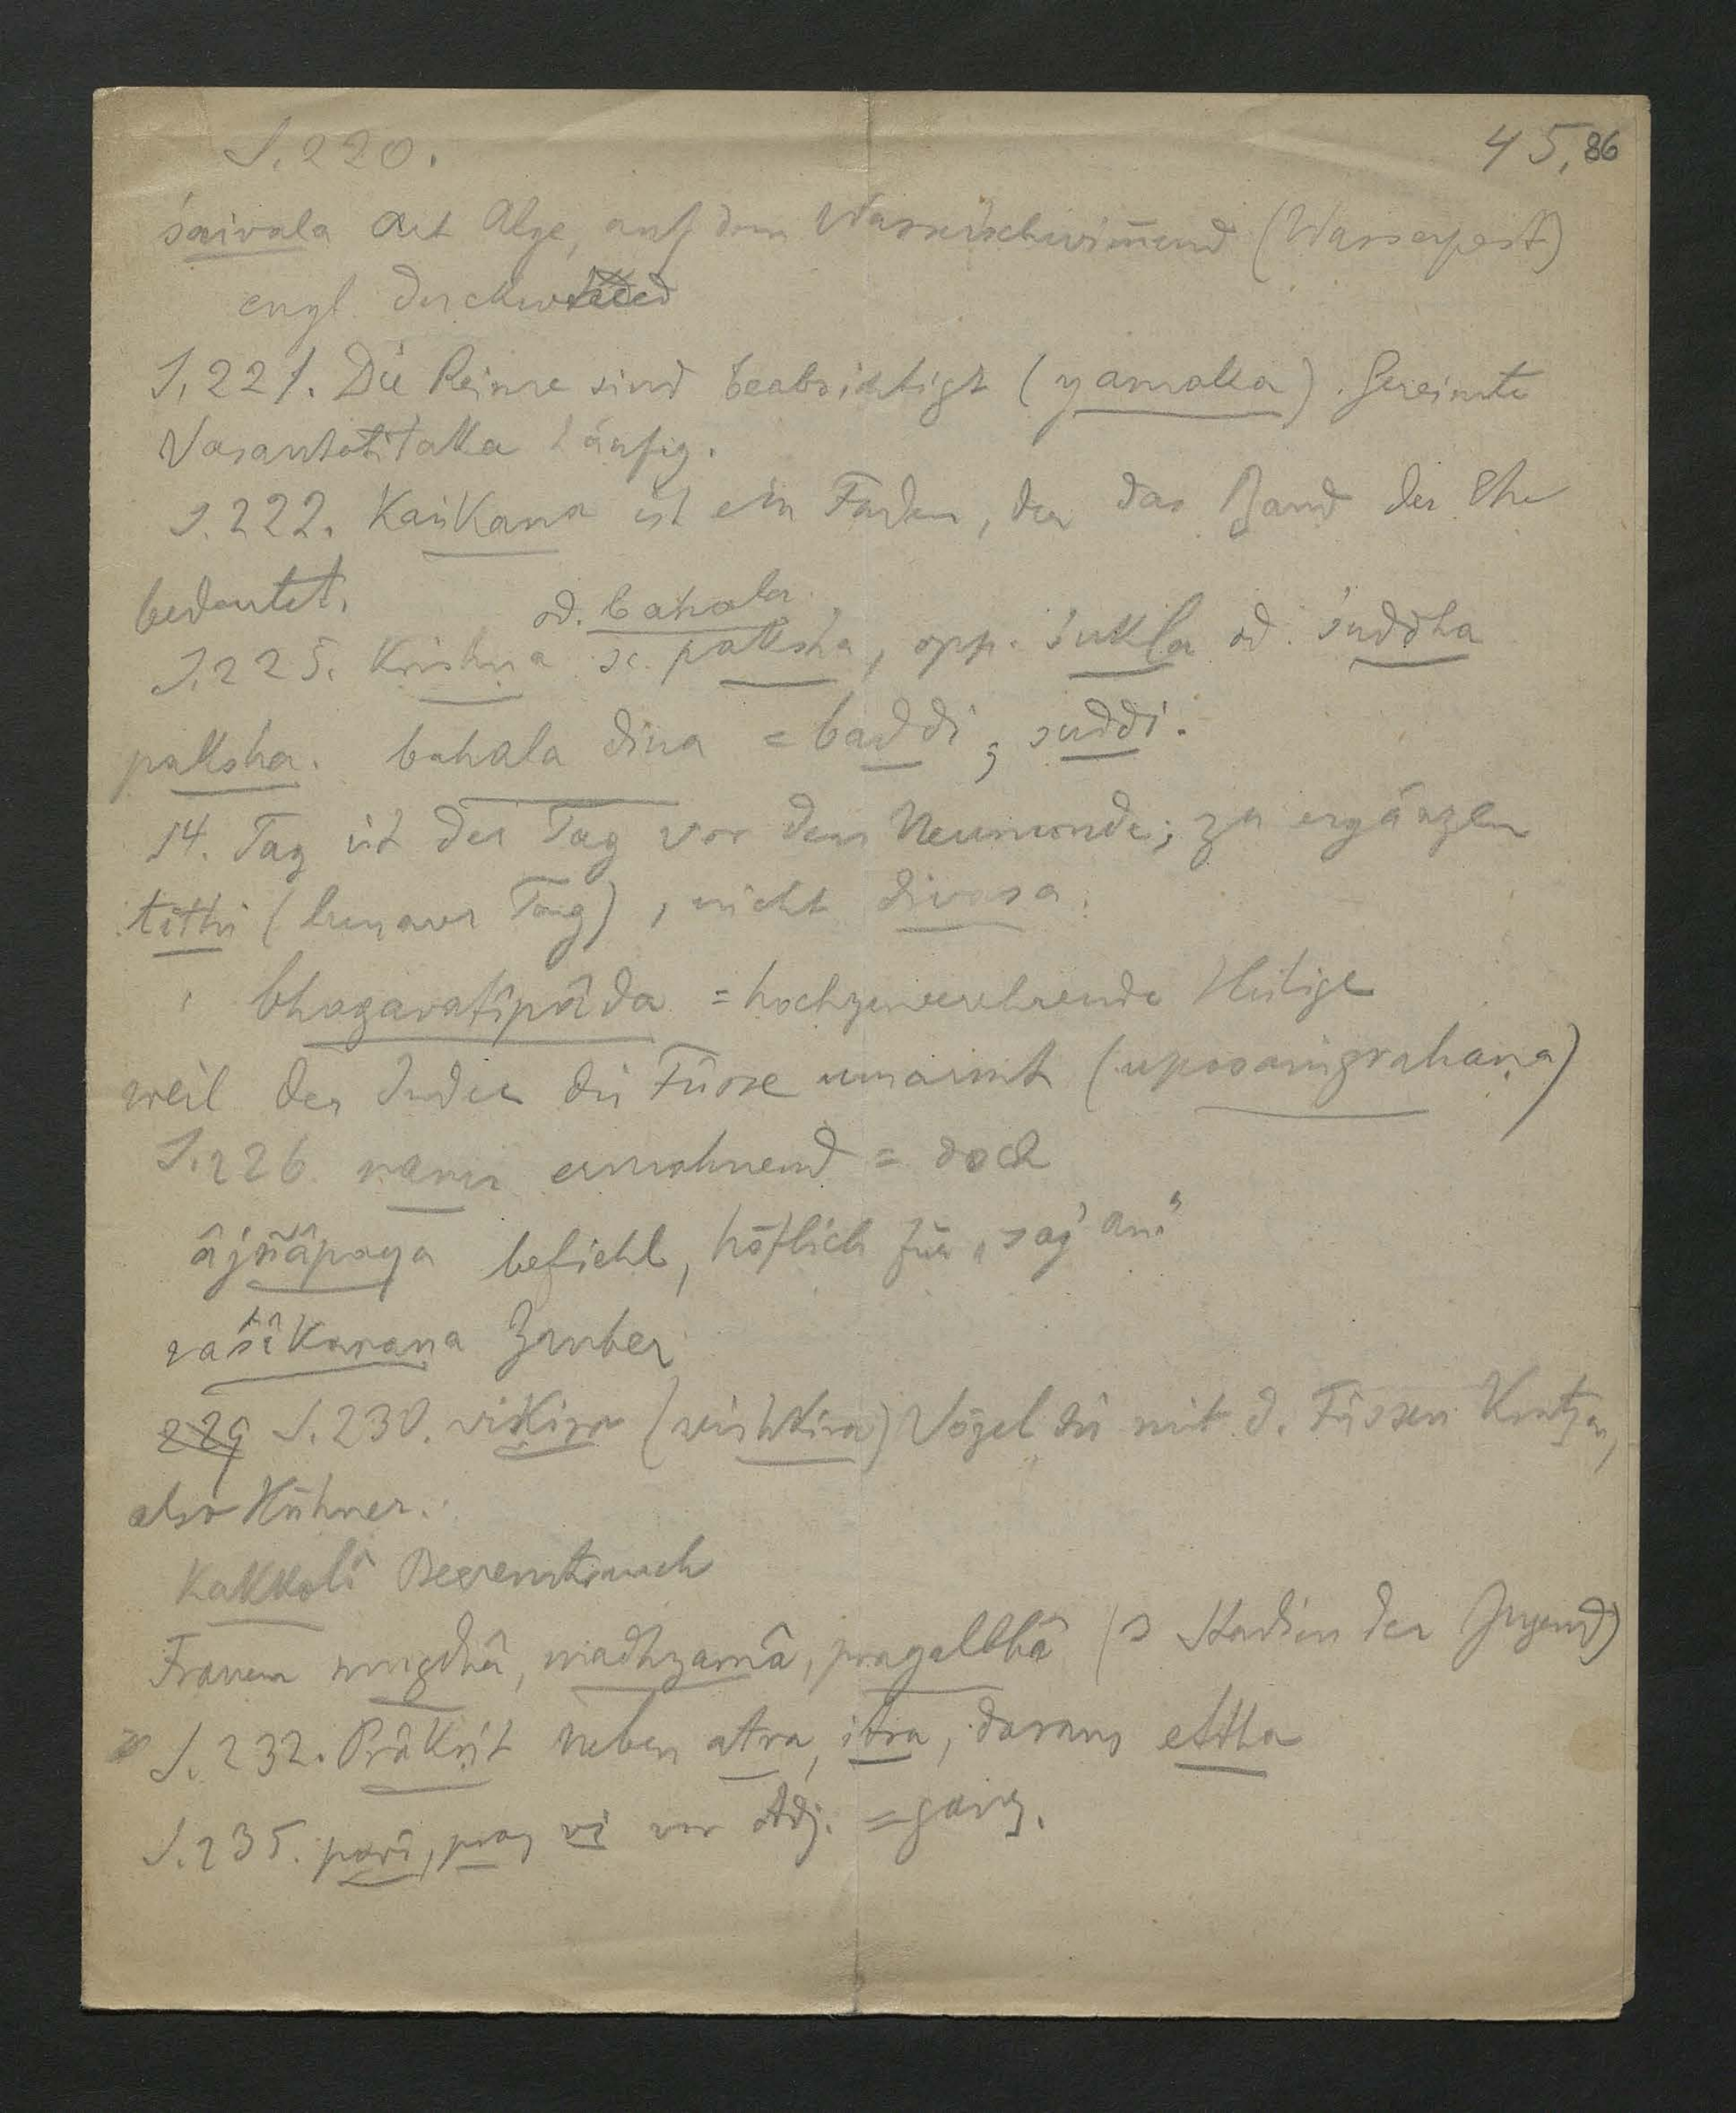 S. 220.
45, 86
śaivala Art Alge, auf dem Wasser schwim̄end (Wasserpest)
engl. duckweed
S. 221. Die Reime sind beabsichtigt (yamaka). Gereimte
Vasantatilaka häufig.
S. 222. Kaṅkana ist ein Faden, der das Band der Ehe
bedeutet.
od. bahala
S. 225. Krishna sc. paksha, opp. śukla od. śuddha
paksha. bahala dina = baddi, suddi.
14. Tag ist der Tag vor dem Neumonde; zu ergänzen
tithi (lunarer Tag), nicht divasa.
bhagavatîpâda = hochzuverehrende Heilige
weil der Inder die Füsse umarmt (upasaṁgrahaṇa)
S. 226 nanu ermahnend = doch
âjñâpaya befiehl, höflich für „sag' an"
vaśîkaraṇa Zauber
229 S. 230. vikira (vishkira) Vögel die mit d. Füssen Kratzen,
also Hühner.
Kakkolî Beerenstrauch
Frauen mugdhâ, madhyamâ, pragalbhâ (3 Stadien der Jugend)
S. 232. Prâkrit neben atra, itra, daraus ettha
S. 235. pari, pra, vi vor Adj. = ganz.